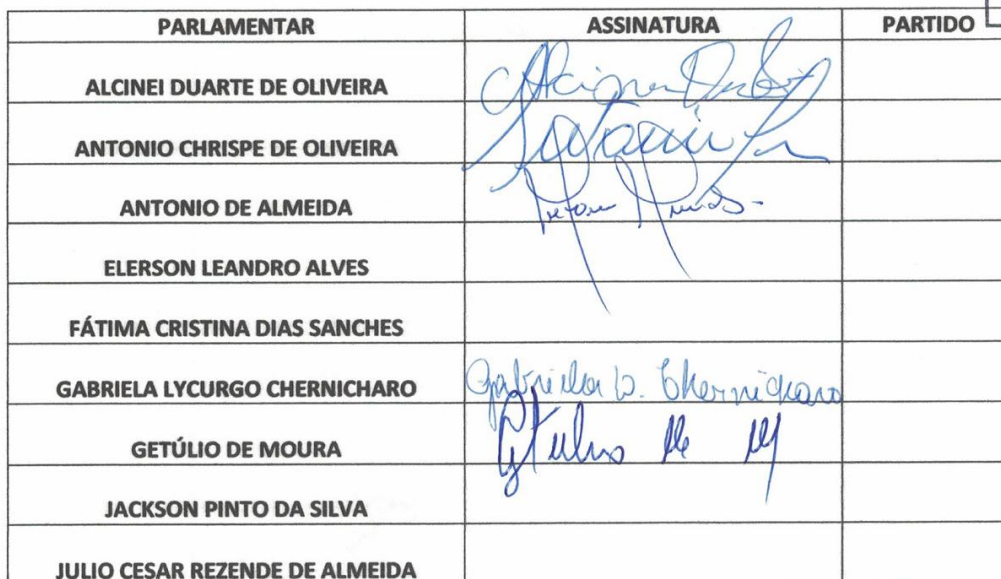 PARLAMENTAR ASSINATURA PARTIDO
ALCINEI DUARTE DE OLIVEIRA
ANTONIO CHRISPE DE OLIVEIRA
ANTONIO DE ALMEIDA
ELERSON LEANDRO ALVES
FÁTIMA CRISTINA DIAS SANCHES
GABRIELA LYCURGO CHERNICHARO Gabriela L. Chernicharo
GETÚLIO DE MOURA Getulio de M
JACKSON PINTO DA SILVA
JULIO CESAR REZENDE DE ALMEIDA